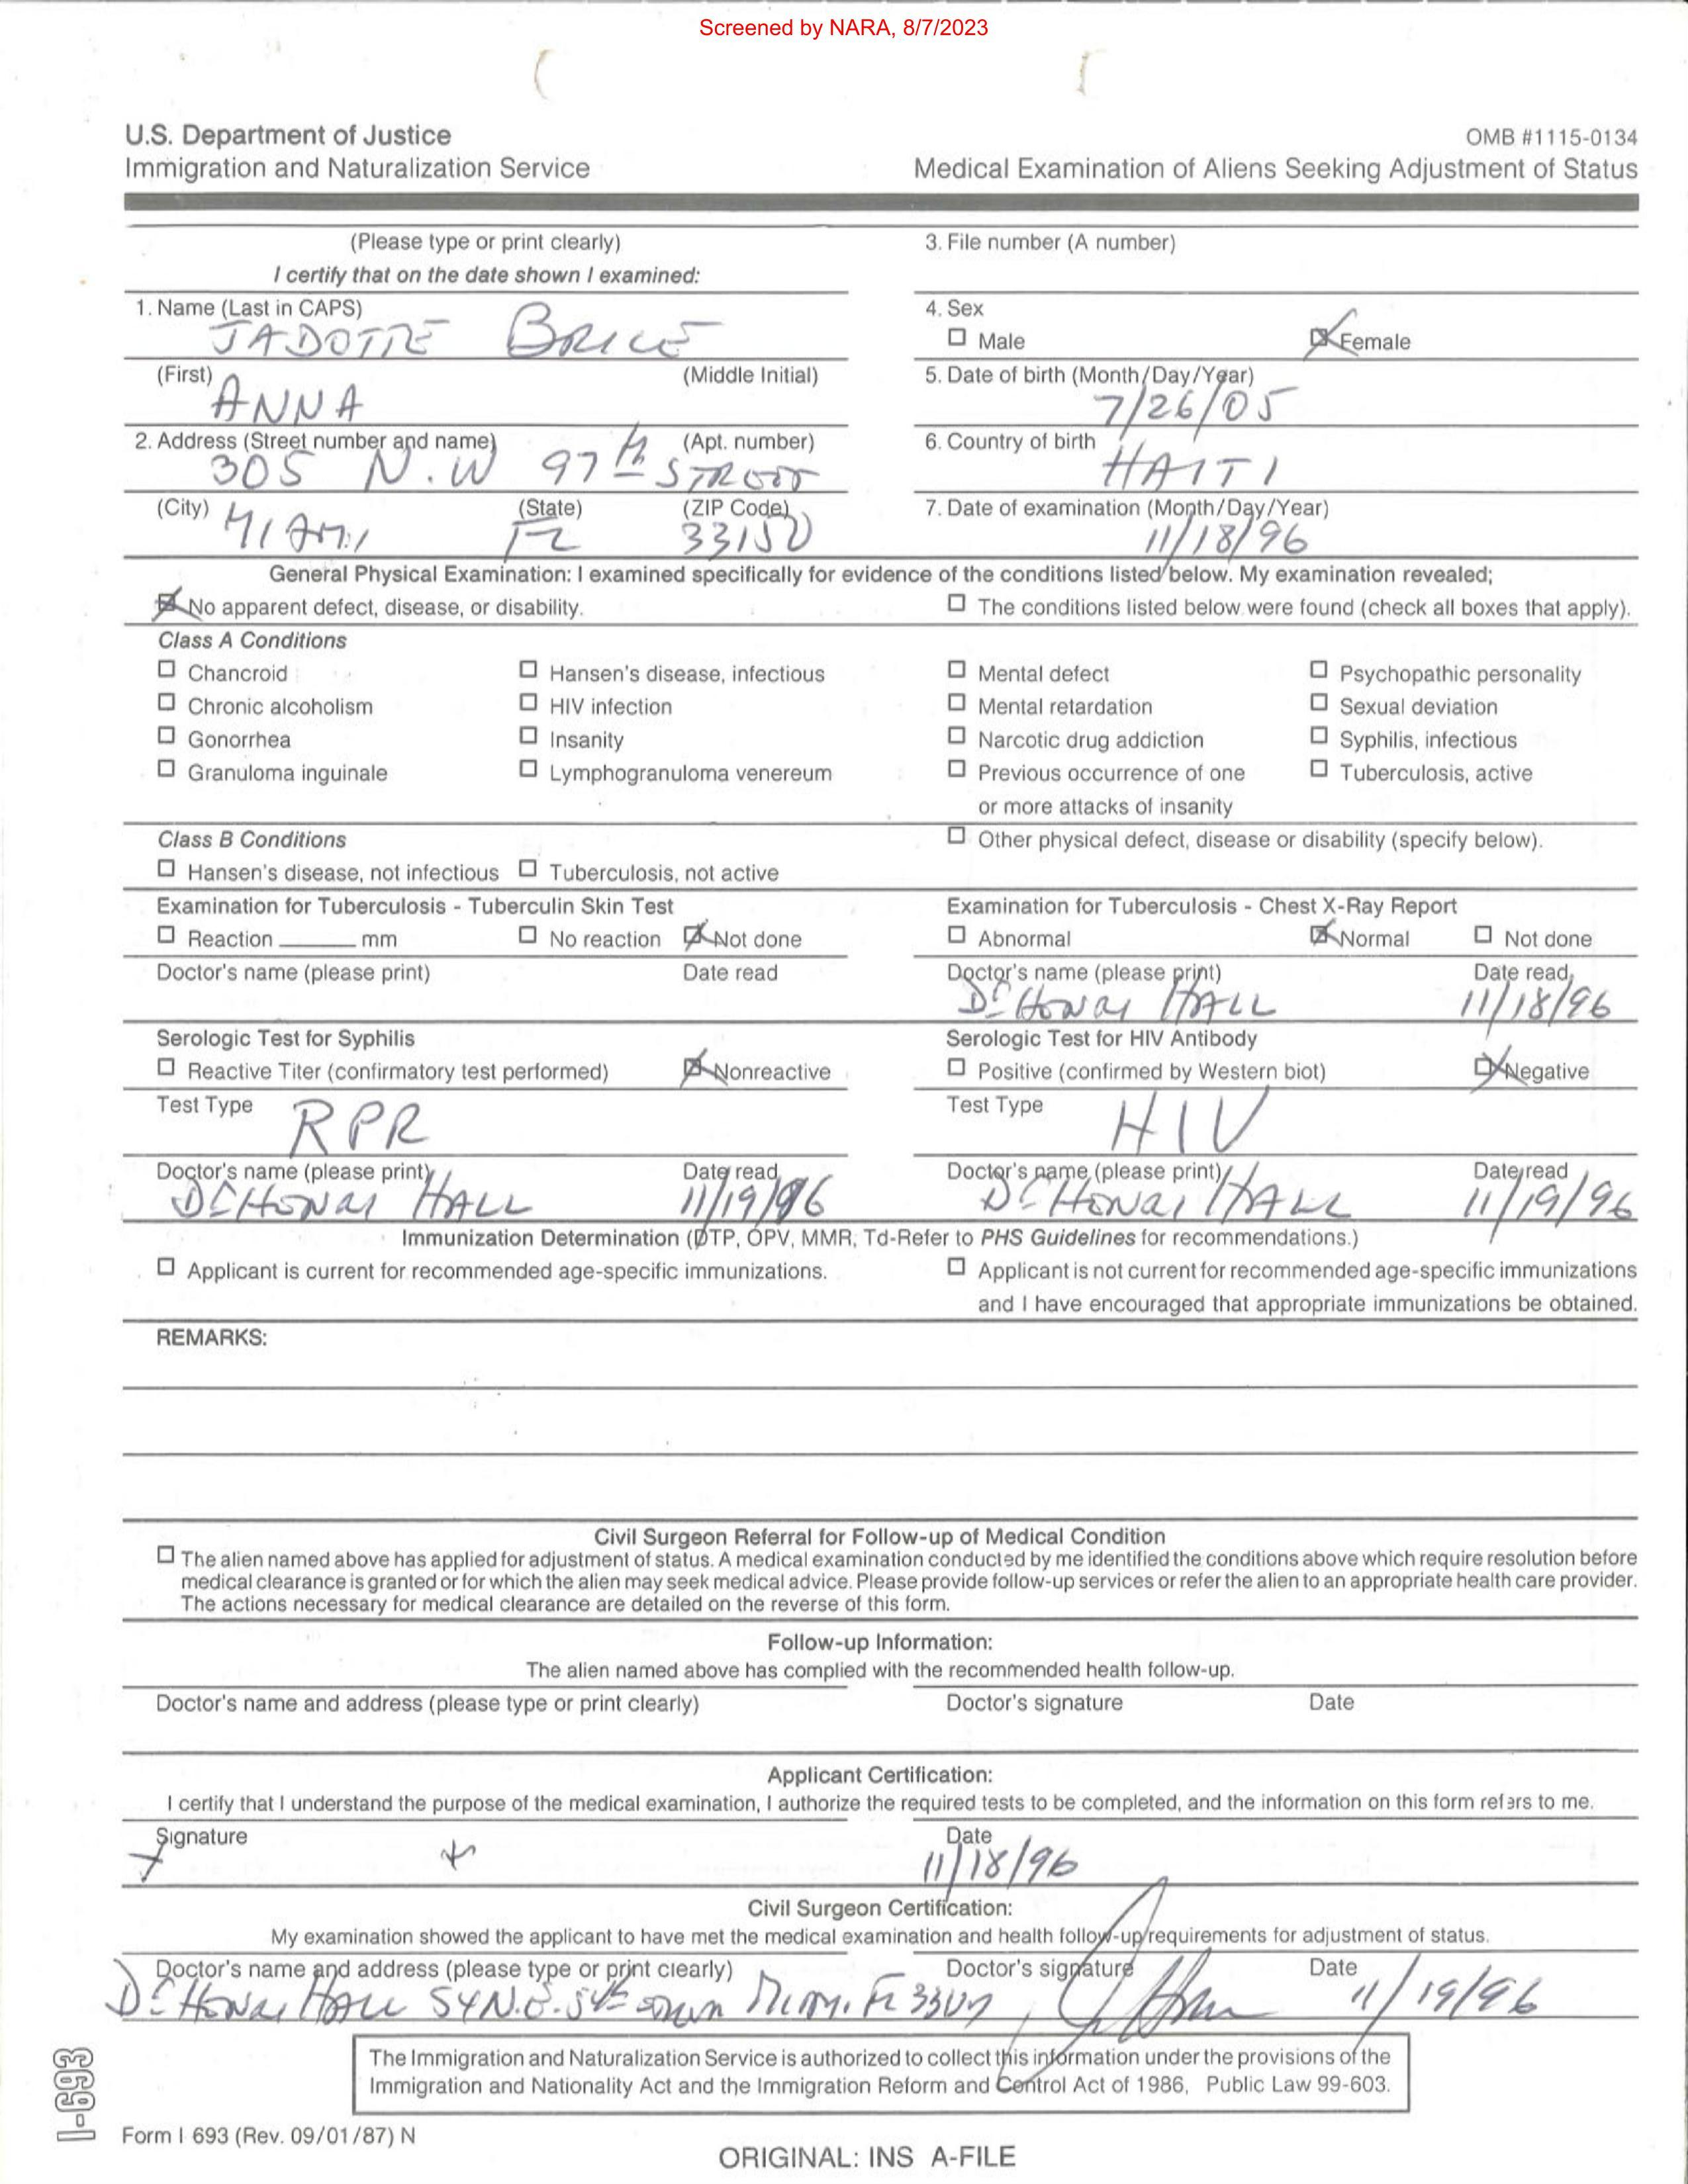 Screened by NARA, 8/7/2023
U.S. Department of Justice
Immigration and Naturalization Service
OMB #1115-0134
Medical Examination of Aliens Seeking Adjustment of Status
(Please type or print clearly)
I certify that on the date shown I examined:
3. File number (A number)
1. Name (Last in CAPS)
JADOTTE BRICE
4. Sex
☐ Male ☒ Female
(First) (Middle Initial)
ANNA
5. Date of birth (Month/Day/Year)
7/26/05
2. Address (Street number and name) (Apt. number)
305 N.W 97th STREET
6. Country of birth
HAITI
(City) (State) (ZIP Code)
MIAMI FL 33150
7. Date of examination (Month/Day/Year)
11/18/96
General Physical Examination: I examined specifically for evidence of the conditions listed below. My examination revealed;
☒ No apparent defect, disease, or disability. ☐ The conditions listed below were found (check all boxes that apply).
Class A Conditions
☐ Chancroid ☐ Hansen's disease, infectious ☐ Mental defect ☐ Psychopathic personality
☐ Chronic alcoholism ☐ HIV infection ☐ Mental retardation ☐ Sexual deviation
☐ Gonorrhea ☐ Insanity ☐ Narcotic drug addiction ☐ Syphilis, infectious
☐ Granuloma inguinale ☐ Lymphogranuloma venereum ☐ Previous occurrence of one ☐ Tuberculosis, active
or more attacks of insanity
Class B Conditions ☐ Other physical defect, disease or disability (specify below).
☐ Hansen's disease, not infectious ☐ Tuberculosis, not active
Examination for Tuberculosis - Tuberculin Skin Test
☐ Reaction ______ mm ☐ No reaction ☒ Not done
Doctor's name (please print) Date read
Examination for Tuberculosis - Chest X-Ray Report
☐ Abnormal ☒ Normal ☐ Not done
Doctor's name (please print) Date read
Dr HALL 11/18/96
Serologic Test for Syphilis
☐ Reactive Titer (confirmatory test performed) ☒ Nonreactive
Test Type RPR
Doctor's name (please print) Date read
Dr HALL 11/19/96
Serologic Test for HIV Antibody
☐ Positive (confirmed by Western biot) ☒ Negative
Test Type HIV
Doctor's name (please print) Date read
Dr HALL 11/19/96
Immunization Determination (DTP, OPV, MMR, Td-Refer to PHS Guidelines for recommendations.)
☐ Applicant is current for recommended age-specific immunizations. ☐ Applicant is not current for recommended age-specific immunizations
and I have encouraged that appropriate immunizations be obtained.
REMARKS:
Civil Surgeon Referral for Follow-up of Medical Condition
☐ The alien named above has applied for adjustment of status. A medical examination conducted by me identified the conditions above which require resolution before
medical clearance is granted or for which the alien may seek medical advice. Please provide follow-up services or refer the alien to an appropriate health care provider.
The actions necessary for medical clearance are detailed on the reverse of this form.
Follow-up Information:
The alien named above has complied with the recommended health follow-up.
Doctor's name and address (please type or print clearly) Doctor's signature Date
Applicant Certification:
I certify that I understand the purpose of the medical examination, I authorize the required tests to be completed, and the information on this form refers to me.
Signature Date
11/18/96
Civil Surgeon Certification:
My examination showed the applicant to have met the medical examination and health follow-up requirements for adjustment of status.
Doctor's name and address (please type or print clearly) Doctor's signature Date
Dr HALL 54 N.E. 54th Miami FL 11/19/96
The Immigration and Naturalization Service is authorized to collect this information under the provisions of the
Immigration and Nationality Act and the Immigration Reform and Control Act of 1986, Public Law 99-603.
I-693
Form I 693 (Rev. 09/01/87) N
ORIGINAL: INS A-FILE